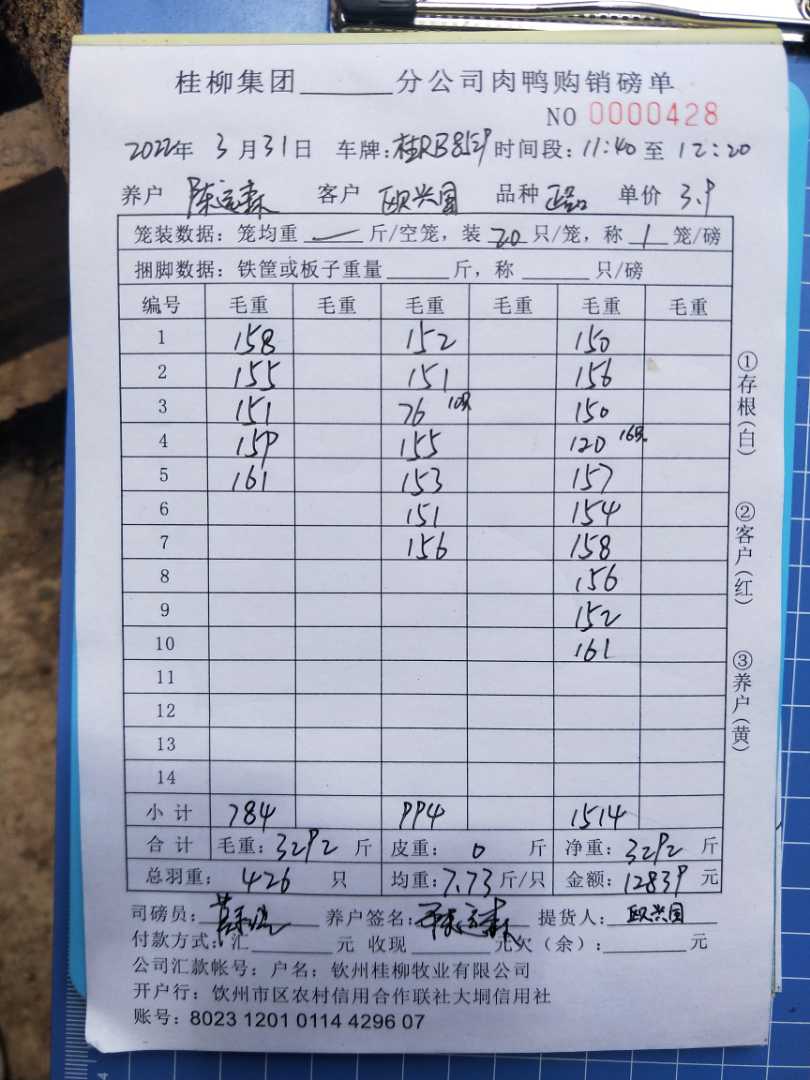 桂柳集团______分公司肉鸭购销磅单
NO 0000428
2022年 3月31日 车牌:桂RB8529 时间段:11:40至12:20
养户 陈运森 客户 欧兴国 品种 单价 3.9
笼装数据:笼均重 — 斤/空笼,装 20 只/笼,称 1 笼/磅
捆脚数据:铁筐或板子重量______斤,称______只/磅
编号 毛重 毛重 毛重 毛重 毛重 毛重
1 158 152 150
2 155 151 156
3 151 76 10只 150
4 159 155 120 16只
5 161 153 157
6 151 154
7 156 158
8 156
9 152
10 161
11
12
13
14
小计 784 994 1514
合计 毛重:3292 斤 皮重:0 斤 净重:3292 斤
总羽重:426 只 均重:7.73斤/只 金额:12839 元
司磅员: 养户签名:陈运森 提货人:欧兴国
付款方式:汇______元 收现______元欠(余):______元
公司汇款帐号:户名:钦州桂柳牧业有限公司
开户行:钦州市区农村信用合作联社大垌信用社
账号:8023 1201 0114 4296 07
①存根(白)
②客户(红)
③养户(黄)